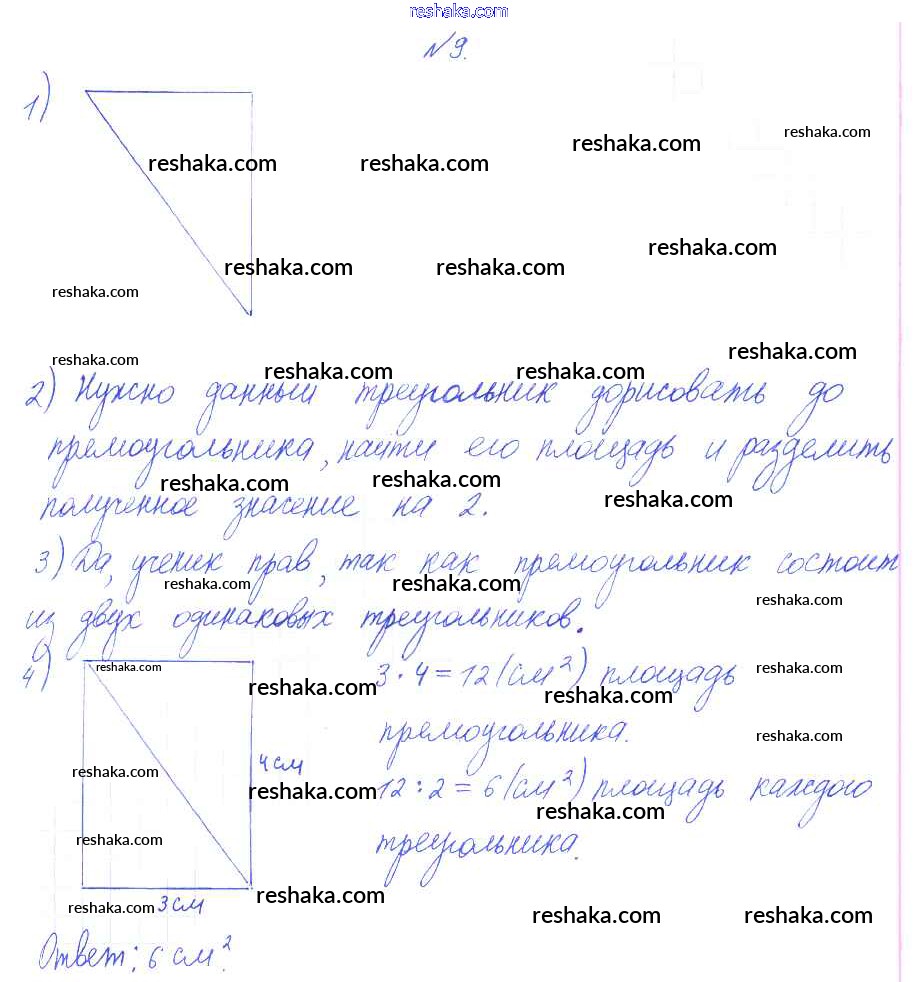 reshaka.com
№9.
1)
reshaka.com
reshaka.com reshaka.com reshaka.com
reshaka.com
reshaka.com reshaka.com
reshaka.com
reshaka.com
reshaka.com
reshaka.com reshaka.com
2) Нужно данный треугольник дорисовать до
прямоугольника, найти его площадь и разделить
reshaka.com reshaka.com reshaka.com
полученное значение на 2.
3) Да, ученик прав, так как прямоугольник состоит
reshaka.com reshaka.com reshaka.com
из двух одинаковых треугольников.
4) reshaka.com reshaka.com 3 · 4 = 12 (см²) площадь
reshaka.com reshaka.com
прямоугольника.
reshaka.com
reshaka.com 4 см
reshaka.com 12 : 2 = 6 (см²) площадь каждого
reshaka.com
reshaka.com треугольника.
reshaka.com
reshaka.com 3 см
reshaka.com reshaka.com
Ответ: 6 см².